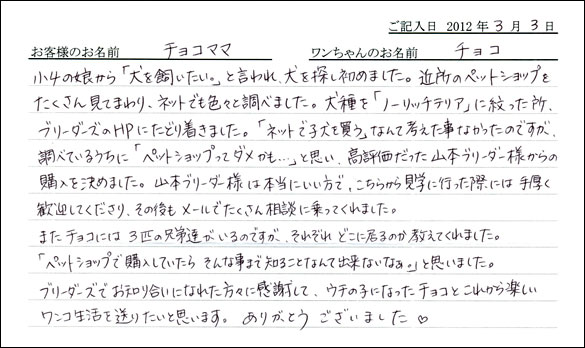 ご記入日 2012 年 3 月 3 日
お客様のお名前 チョコママ ワンちゃんのお名前 チョコ
小4の娘から「犬を飼いたい。」と言われ、犬を探し初めました。近所のペットショップを
たくさん見てまわり、ネットでも色々と調べました。犬種を「ノーリッチテリア」に絞った所、
ブリーダーズのHPにたどり着きました。「ネットで子犬を買う」なんて考えた事なかったのですが、
調べているうちに「ペットショップってダメかも…」と思い、高評価だった山本ブリーダー様からの
購入を決めました。山本ブリーダー様は本当にいい方で、こちらから見学に行った際には手厚く
歓迎してくださり、その後もメールでたくさん相談に乗ってくれました。
またチョコには3匹の兄弟達がいるのですが、それぞれどこに居るのか教えてくれました。
「ペットショップで購入していたらそんな事まで知ることなんて出来ないなぁ。」と思いました。
ブリーダーズでお知り合いになれた方々に感謝して、ウチの子になったチョコとこれから楽しい
ワンコ生活を送りたいと思います。ありがとうございました♡